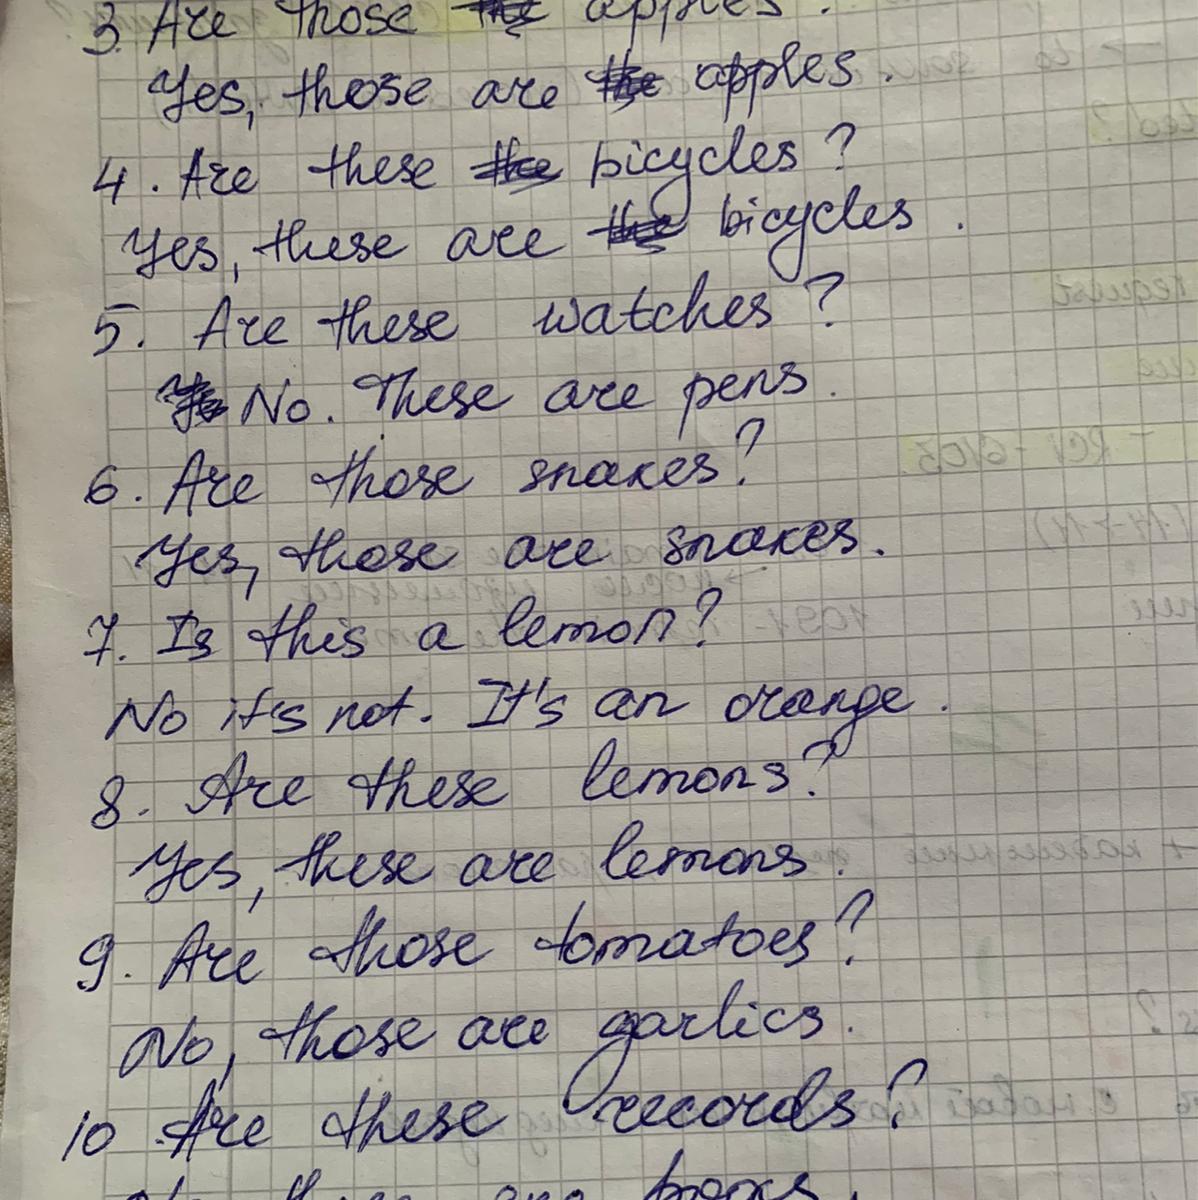 3. Are those apples.
Yes, those are apples.
4. Are these bicycles?
Yes, these are bicycles.
5. Are these watches?
No. These are pens.
6. Are those snakes?
Yes, those are snakes.
7. Is this a lemon?
No it's not. It's an orange.
8. Are these lemons?
Yes, these are lemons.
9. Are those tomatoes?
No, those are garlics.
10 Are these records?